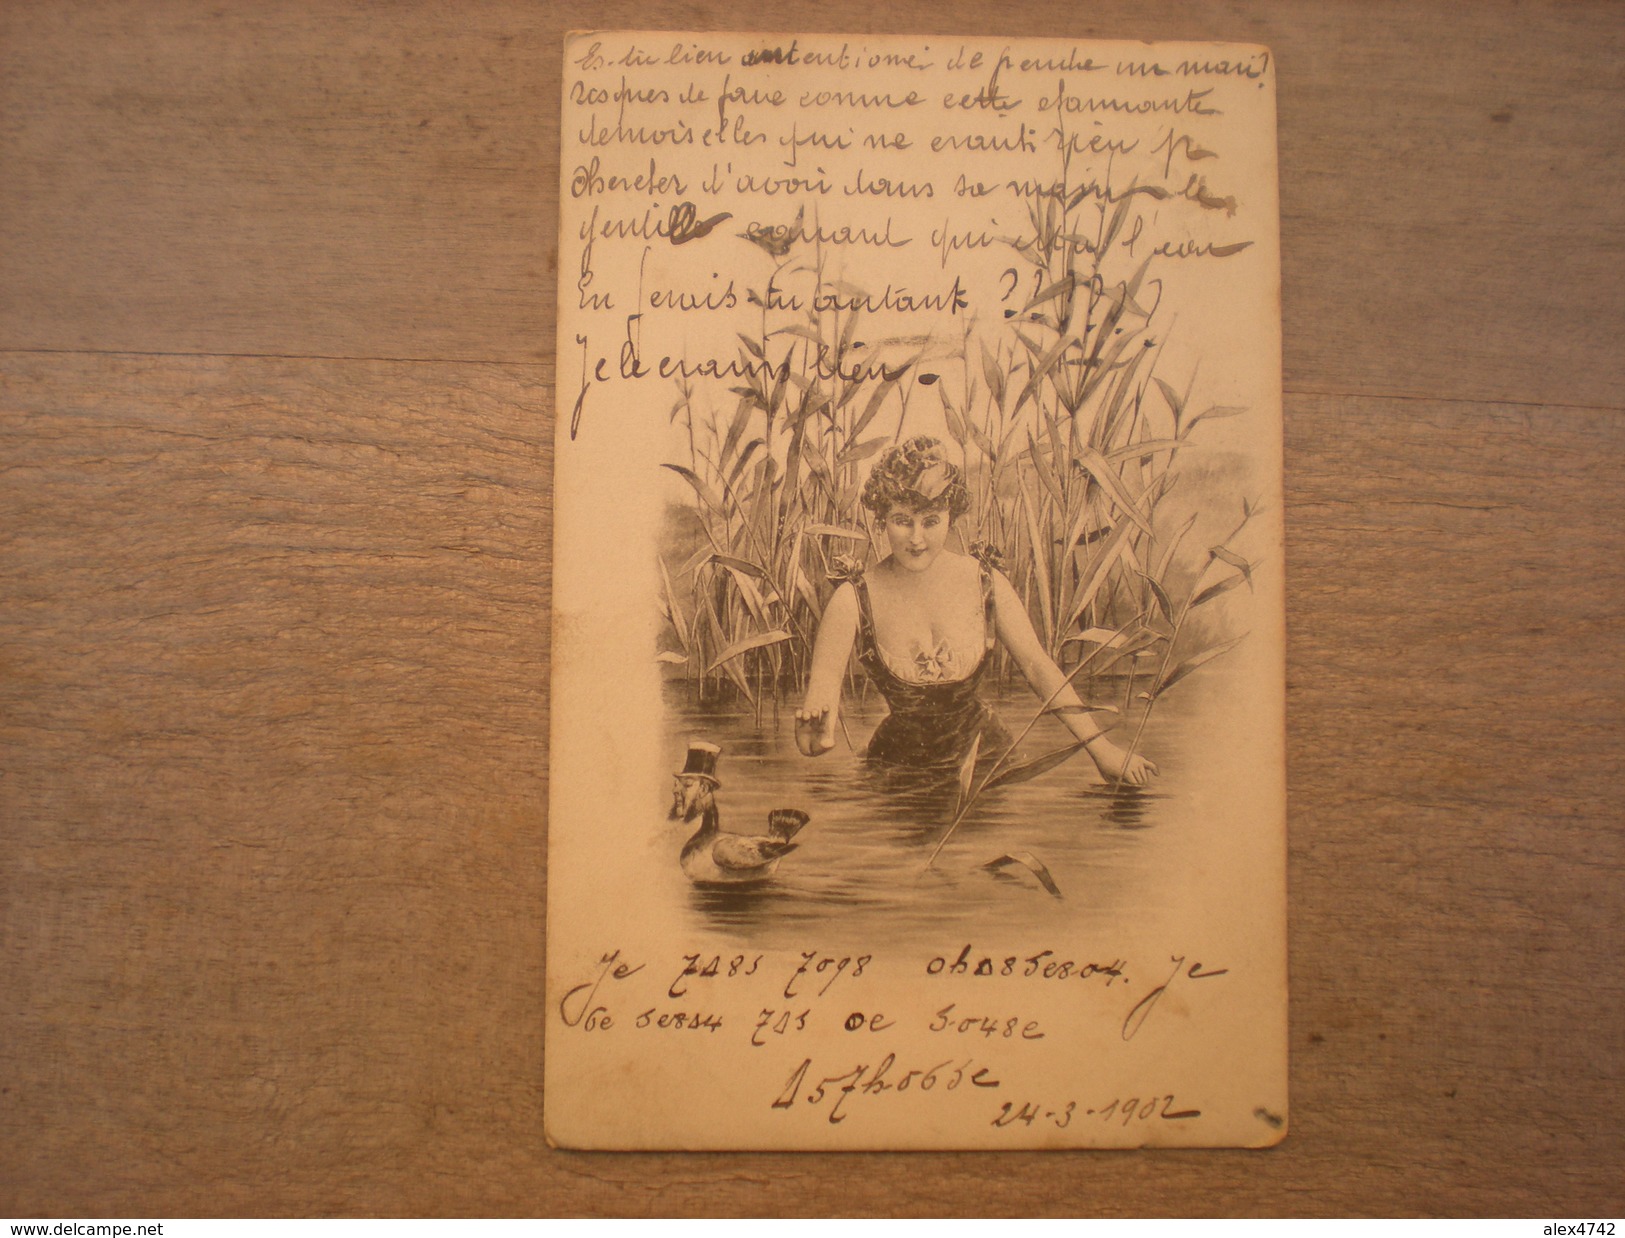 Es-tu bien intentionnei de pendre un mari?
de faire comme cette charmante
demoiselles qui ne craint rien p
chercher d'avoir dans sa main le
gentille canard qui est sur l'eau
En ferais-tu autant ???????
Je le crains bien.
Je 7Δ85 7098 0hΔ85e804. Je
6e 5e8Δ4 7Δ5 0e 5048e
Δ57h066e
24-3-1902
www.delcampe.net
alex4742